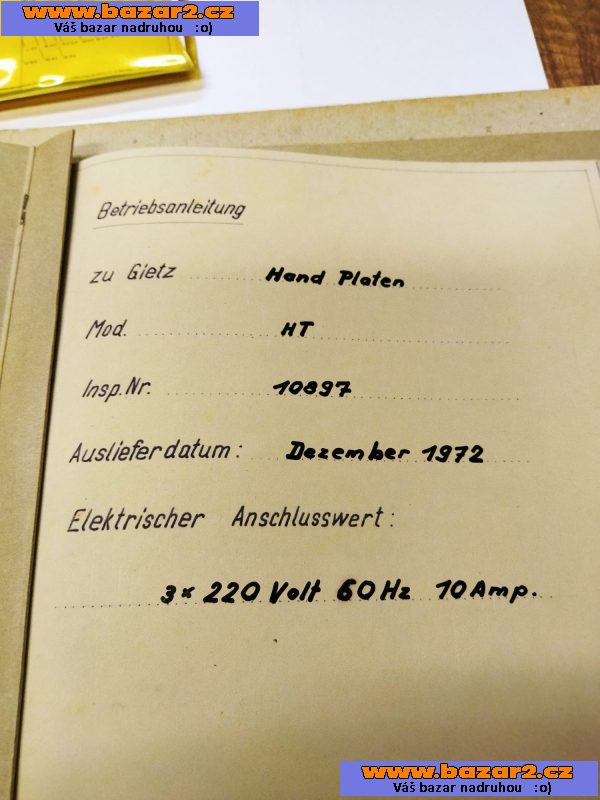 www.bazar2.cz
Váš bazar nadruhou :o)
Betriebsanleitung
zu Gietz Hand Platen
Mod. HT
Insp. Nr. 10897
Auslieferdatum: Dezember 1972
Elektrischer Anschlusswert:
3x 220 Volt 60 Hz 10 Amp.
www.bazar2.cz
Váš bazar nadruhou :o)